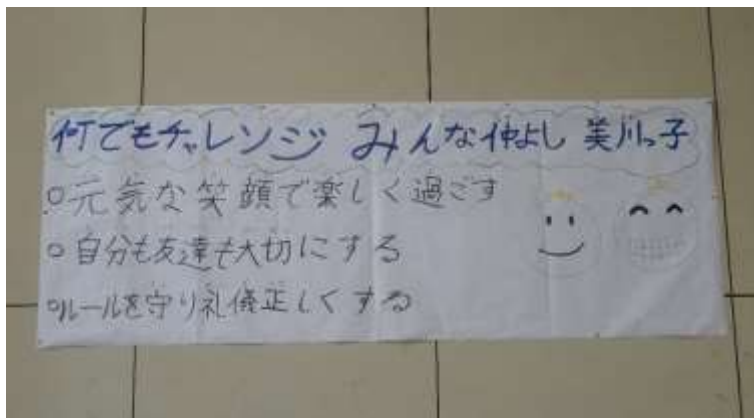 何でもチャレンジ みんな仲よし 美川っ子
○元気な笑顔で楽しく過ごす
○自分も友達も大切にする
○ルールを守り礼儀正しくする